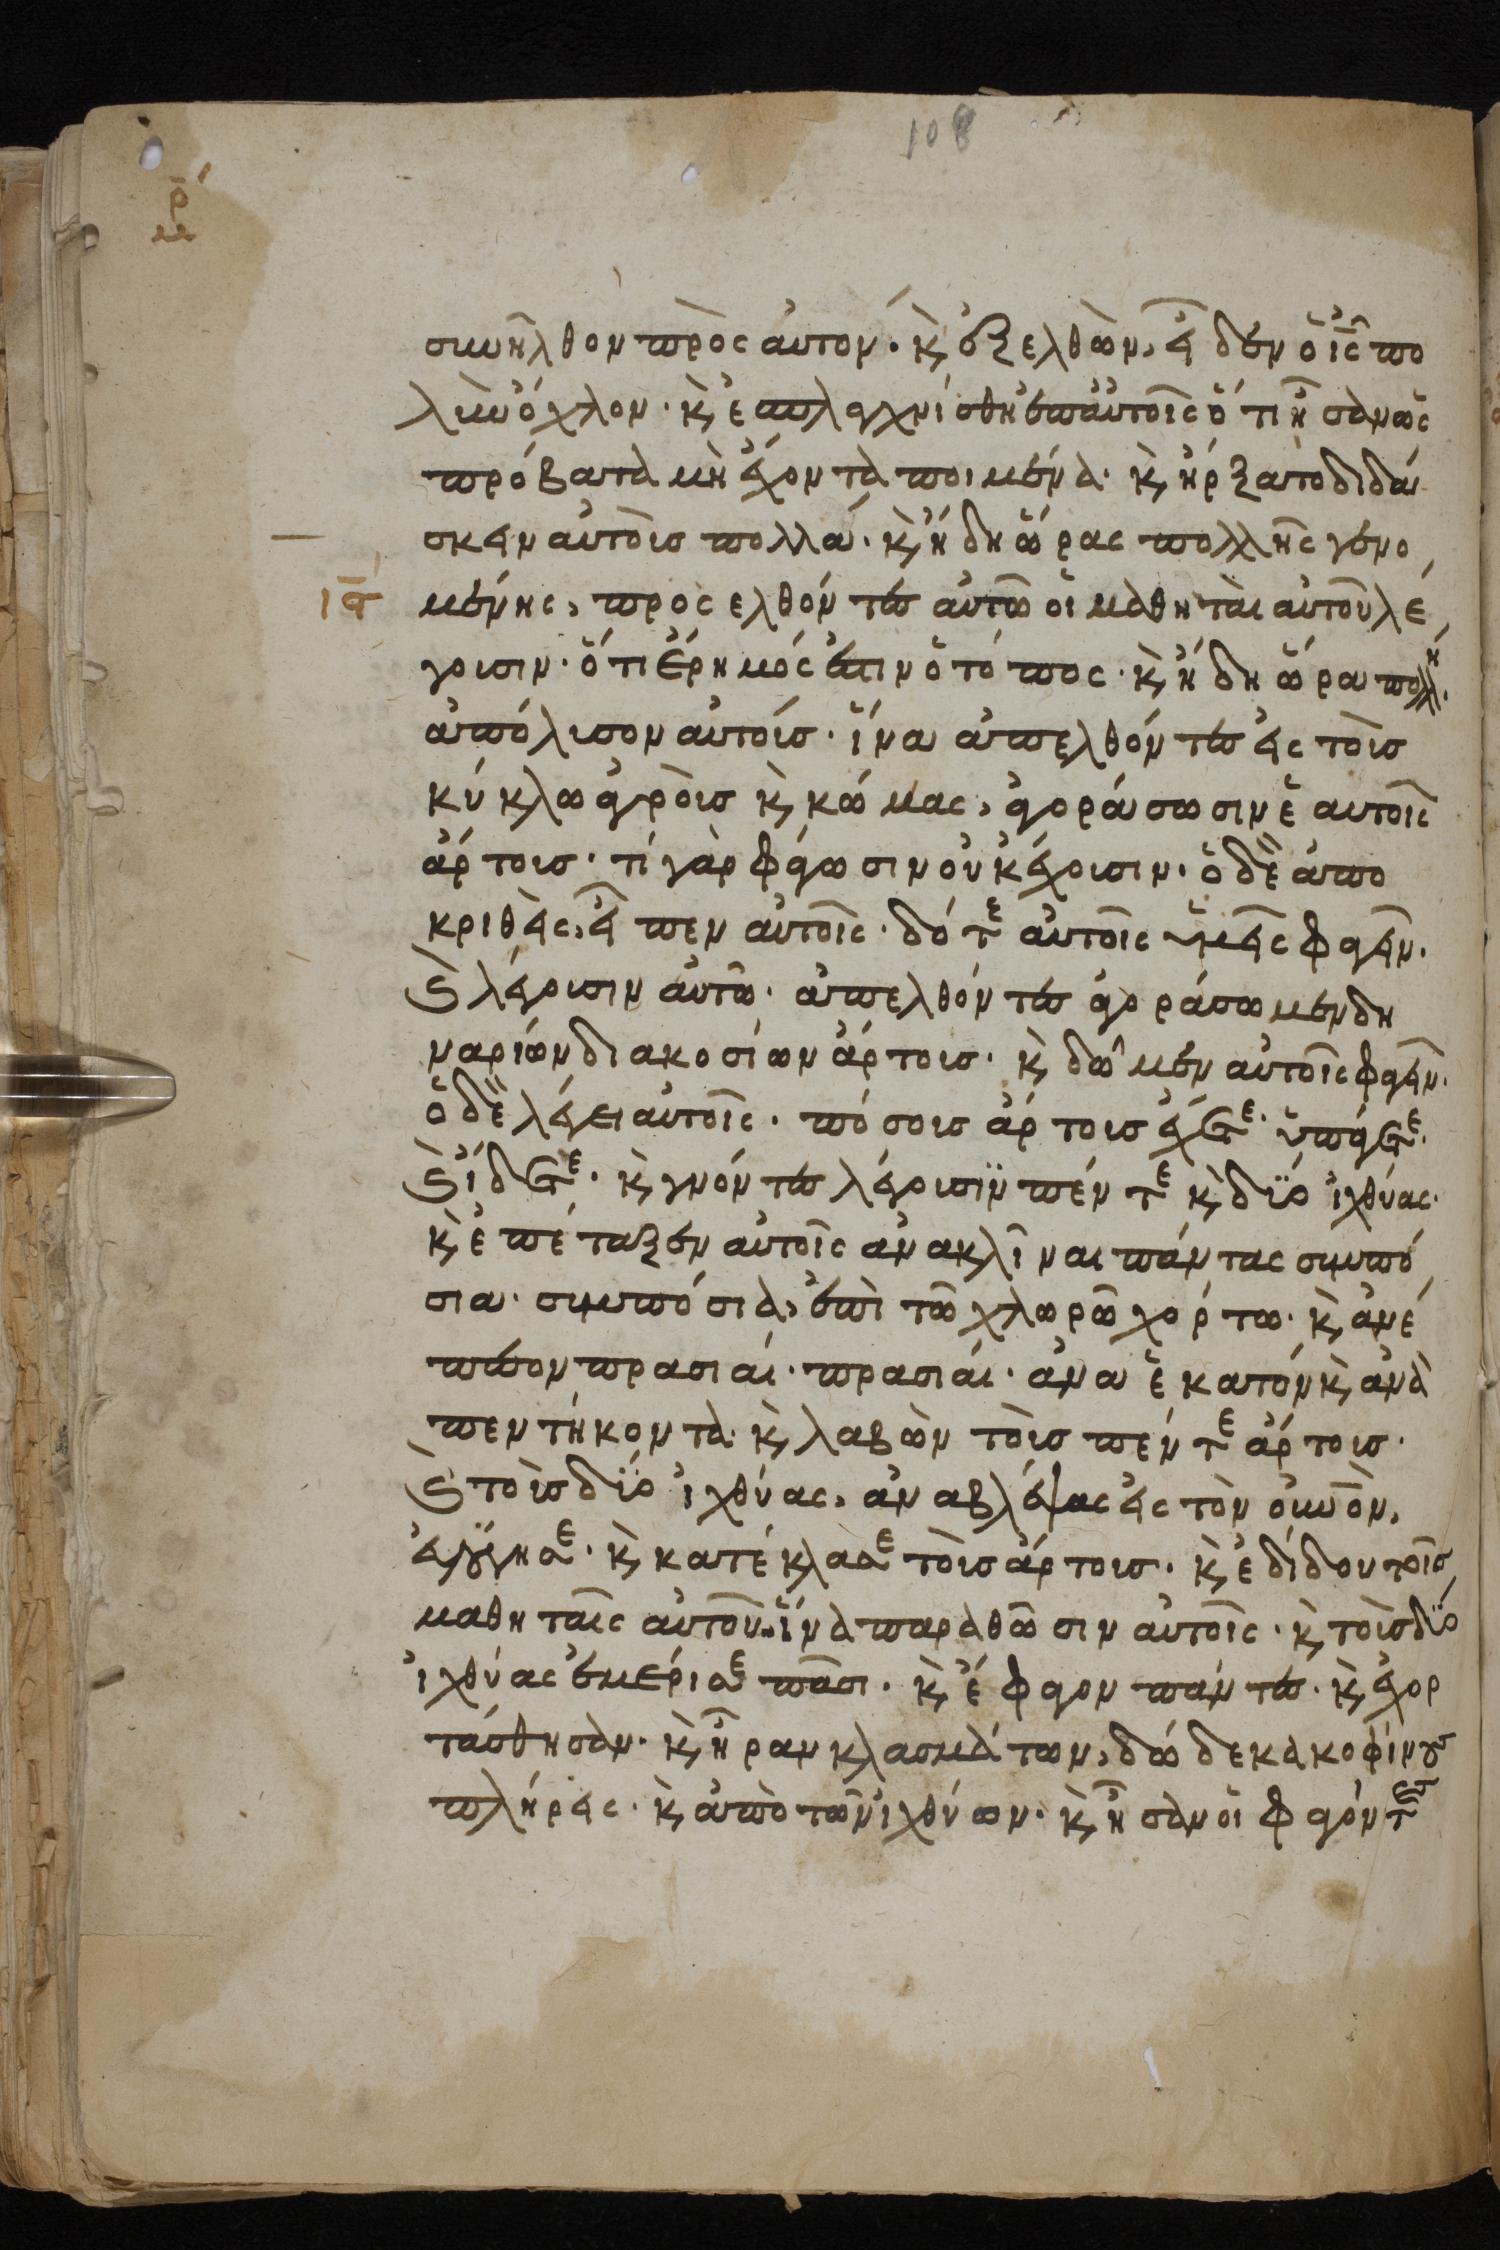 108
ρ̅
μ
συνῆλθον πρὸς αὐτόν· κ̀ ἐξελθὼν, εἶδεν ὁ ἰ̅ς̅ πο
λὺν ὄχλον· κ̀ ἐσπλαγχνίσθη ἐπ αὐτοῖς ὅτι ἦσαν ὡς
πρόβατα μὴ ἔχοντα ποιμένα· κ̀ ἤρξατο διδά
σκειν αὐτοὺς πολλά· κ̀ ἤδη ὥρας πολλῆς γενο
ιϛ̅ μένης, προσελθόντες αὐτῶ οἱ μαθηταὶ αὐτοῦ λέ
γουσιν· ὅτι ἔρημός ἐστιν ὁ τόπος· κ̀ ἤδη ὥρα πολλή·
ἀπόλυσον αὐτούς· ἵνα ἀπελθόντες εἰς τοὺς
κύκλω ἀγροὺς κ̀ κώμας, ἀγοράσωσιν ἑαυτοῖς
ἄρτους· τί γὰρ φάγωσιν οὐκ ἔχουσιν· ὁ δὲ ἀπο
κριθεὶς, εἶπεν αὐτοῖς· δότε αὐτοῖς ὑμεῖς φαγεῖν·
κ̀ λέγουσιν αὐτῶ· ἀπελθόντες ἀγοράσωμεν δη
ναρίων διακοσίων ἄρτους· κ̀ δῶμεν αὐτοῖς φαγεῖν·
ὁ δὲ λέγει αὐτοῖς· πόσους ἄρτους ἔχετε· ὑπάγετε·
κ̀ ἴδετε· κ̀ γνόντες λέγουσϊν πέντε κ̀ δϋο ἰχθύας·
κ̀ ἐπέταξεν αὐτοῖς ἀνακλῖναι πάντας συμπό
σια· συμπόσια, ἐπὶ τῶ χλωρῶ χόρτω· κ̀ ἀνέ
πεσον πρασιαί· πρασιαί· ἀνα ἑκατὸν κ̀ ἀνὰ
πεντήκοντα· κ̀ λαβὼν τοὺς πέντε ἄρτους·
κ̀ τοὺς δϋο ἰχθύας, ἀναβλέψας εἰς τὸν οὐ̅νο̅ν,
εὐλόγησε· κ̀ κατέκλασε τοὺς ἄρτους· κ̀ ἐδίδου τοῖς
μαθηταῖς αὐτοῦ, ἵνα παραθῶσιν αὐτοῖς· κ̀ τοὺς δϋο
ἰχθύας ἐμέρισε πᾶσι· κ̀ ἔφαγον πάντες· κ̀ ἐχορ
τάσθησαν· κ̀ ἦραν κλασμάτων, δώδεκα κοφίνους
πλήρεις· κ̀ ἀπὸ τῶν ἰχθύων· κ̀ ἦσαν οἱ φαγόντες